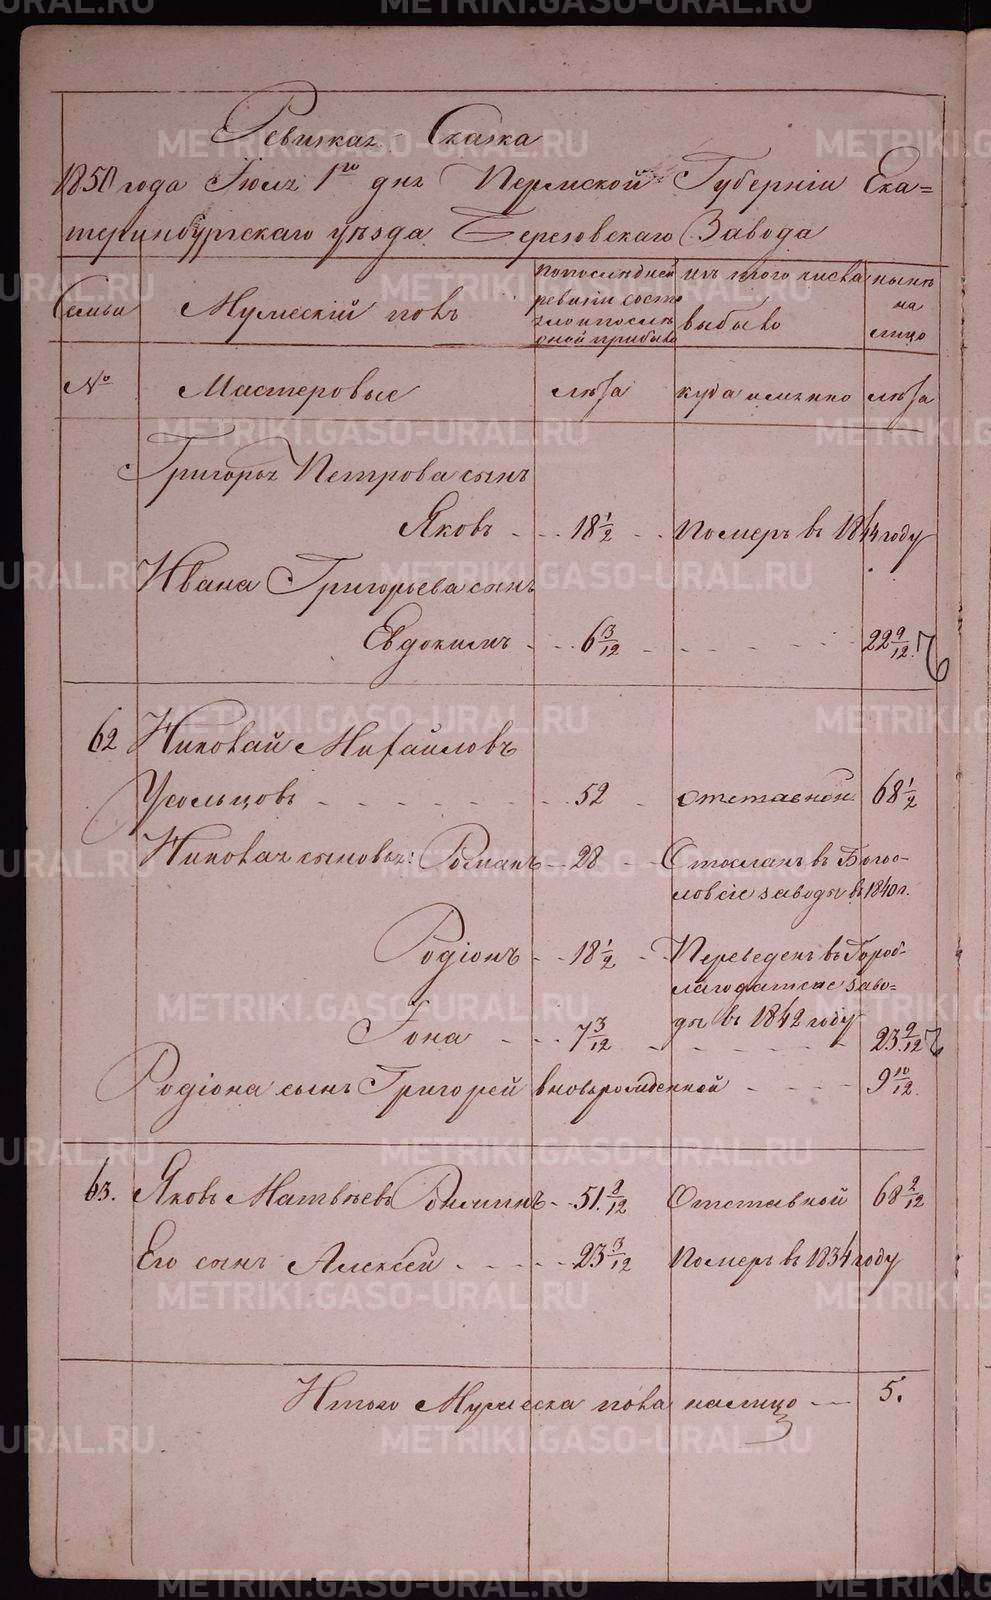 Ревизкая Сказка
1850 года Іюля 1го дня Пермской Губерніи Ека=
теринбургскаго уѣзда Березовскаго Завода
Семьи
Мужескій полъ
по последней
ревизіи состо
яло и послѣ
оной прибыло
изъ того числа
выбыло
нынѣ
на
лицо
№
Мастеровые
лѣта
куда именно
лѣта
Григорья Петрова сынъ
Яковъ 18 1/2 Померъ въ 1844 году
Ивана Григорьева сынъ
Евдокимъ 6 3/12 22 9/12
62 Николай Михайловъ
Усольцовъ 52 отставной 68 1/2
Николая сыновья: Романъ 28 Отосланъ въ Богос-
ловскіе заводы въ 1840 г.
Родіонъ 18 1/2 Переведенъ въ Гороб-
лагодатскіе заво-
ды въ 1842 году
Іона 7 3/12 23 9/12
Родіона сынъ Григорей вновьрожденной 9 10/12
63. Яковъ Матвѣевъ 51 9/12 Отставной 68 2/12
Его сынъ Алексѣй 23 3/12 Померъ въ 1834 году
Итого Мужеска пола налицо 5.
METRIKI.GASO-URAL.RU